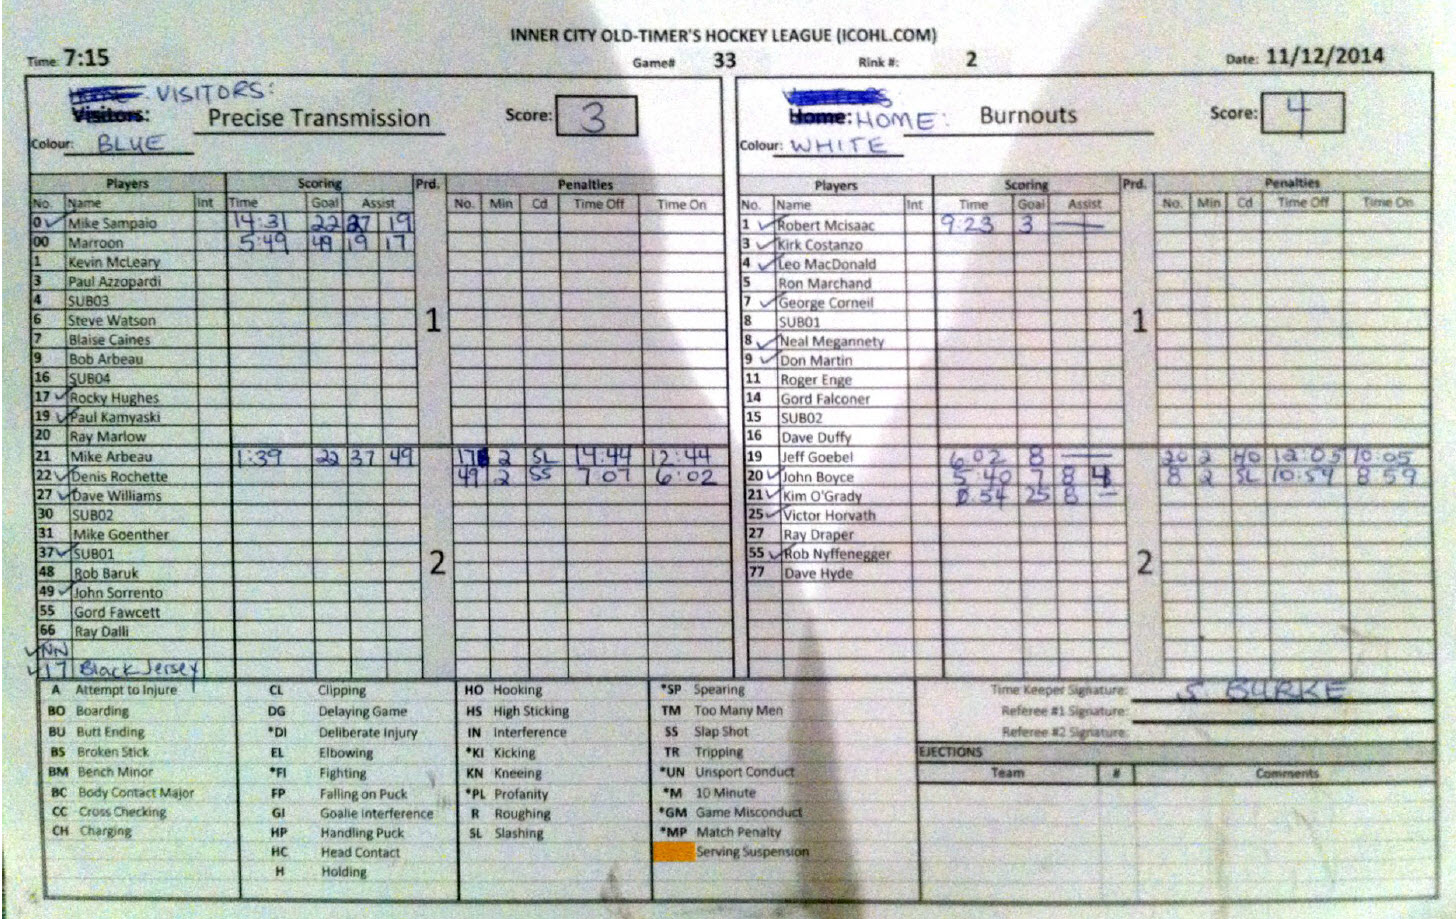 INNER CITY OLD-TIMER'S HOCKEY LEAGUE (ICOHL.COM)
Time: 7:15 Game# 33 Rink #: 2 Date: 11/12/2014
VISITORS:
Visitors: Precise Transmission Score: 3
Colour: BLUE
Home: HOME: Burnouts Score: 4
Colour: WHITE
Players Scoring Prd. Penalties
No. Name Int Time Goal Assist No. Min Cd Time Off Time On
0 ✓ Mike Sampaio 14:31 22 27 19
00 Marroon 5:49 49 19 17
1 Kevin McLeary
3 Paul Azzopardi
4 SUB03
6 Steve Watson 1
7 Blaise Caines
9 Bob Arbeau
16 SUB04
17 ✓ Rocky Hughes
19 ✓ Paul Kamyaski
20 Ray Marlow
21 Mike Arbeau 1:39 22 37 49 17 2 SL 14:44 12:44
22 ✓ Denis Rochette 49 2 SS 7 07 6:02
27 ✓ Dave Williams
30 SUB02
31 Mike Goenther
37 ✓ SUB01 2
48 Rob Baruk
49 ✓ John Sorrento
55 Gord Fawcett
66 Ray Dalli
✓ NN
✓ 17 Black Jersey
Players Scoring Prd. Penalties
No. Name Int Time Goal Assist No. Min Cd Time Off Time On
1 ✓ Robert Mcisaac 9:23 3 —
3 ✓ Kirk Costanzo
4 ✓ Leo MacDonald
5 Ron Marchand
7 ✓ George Corneil
8 SUB01 1
8 ✓ Neal Megannety
9 ✓ Don Martin
11 Roger Enge
14 Gord Falconer
15 SUB02
16 Dave Duffy
19 Jeff Goebel 6:02 8 — 20 2 HO 12:05 10:05
20 ✓ John Boyce 5:40 7 8 4 8 2 SL 10:59 8 59
21 ✓ Kim O'Grady 0:54 25 8 –
25 ✓ Victor Horvath
27 Ray Draper
55 ✓ Rob Nyffenegger 2
77 Dave Hyde
A Attempt to Injure
BO Boarding
BU Butt Ending
BS Broken Stick
BM Bench Minor
BC Body Contact Major
CC Cross Checking
CH Charging
CL Clipping
DG Delaying Game
*DI Deliberate Injury
EL Elbowing
*FI Fighting
FP Falling on Puck
GI Goalie Interference
HP Handling Puck
HC Head Contact
H Holding
HO Hooking
HS High Sticking
IN Interference
*KI Kicking
KN Kneeing
*PL Profanity
R Roughing
SL Slashing
*SP Spearing
TM Too Many Men
SS Slap Shot
TR Tripping
*UN Unsport Conduct
*M 10 Minute
*GM Game Misconduct
*MP Match Penalty
Serving Suspension
Time Keeper Signature: S BURKE
Referee #1 Signature:
Referee #2 Signature:
EJECTIONS
Team # Comments